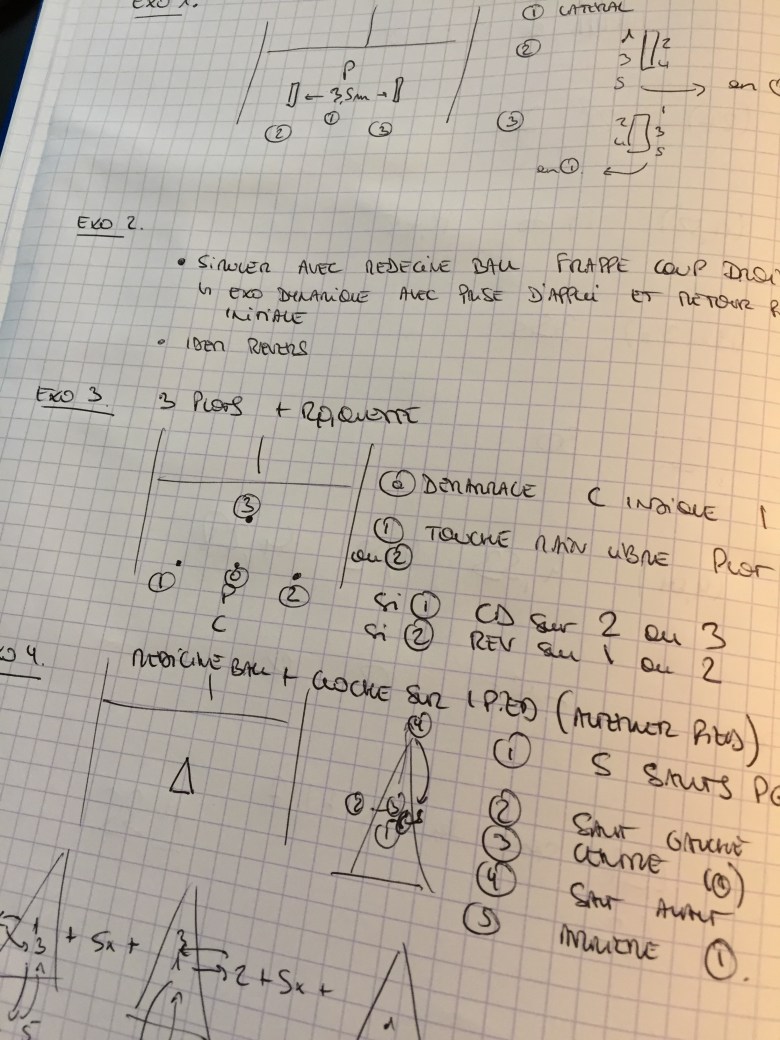 EXO 1.
① LATERAL
P
← 3,5m →
① ② ③
②
1 2
3 4
5 → en ①
③
2 1
4 3
5
en ①. ←
EXO 2.
• SIMULER AVEC MEDECINE BALL FRAPPE COUP DROIT
↳ EXO DYNAMIQUE AVEC PRISE D'APPUI ET RETOUR
INITIALE
• IDEM REVERS
EXO 3 3 PLOTS + RAQUETTE
③
① P ②
C
⓪ DEMARRAGE C INDIQUE 1
① TOUCHE MAIN LIBRE PLOT
ou ②
Si ① CD sur 2 ou 3
Si ② REV sur 1 ou 2
EXO 4. MEDICINE BALL + CLOCHE SUR 1 PIED (ALTERNER PIEDS)
① 5 SAUTS
② SAUT GAUCHE
③ CENTRE
④ SAUT AVANT
⑤ ARRIERE ①.
+ 5x +
2 + 5x +